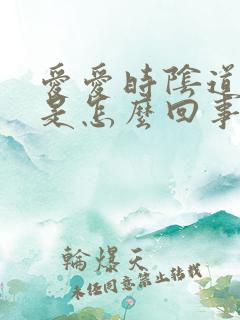 愛愛時陰道
是怎麼回事
輪爆天
未经同意禁止转载